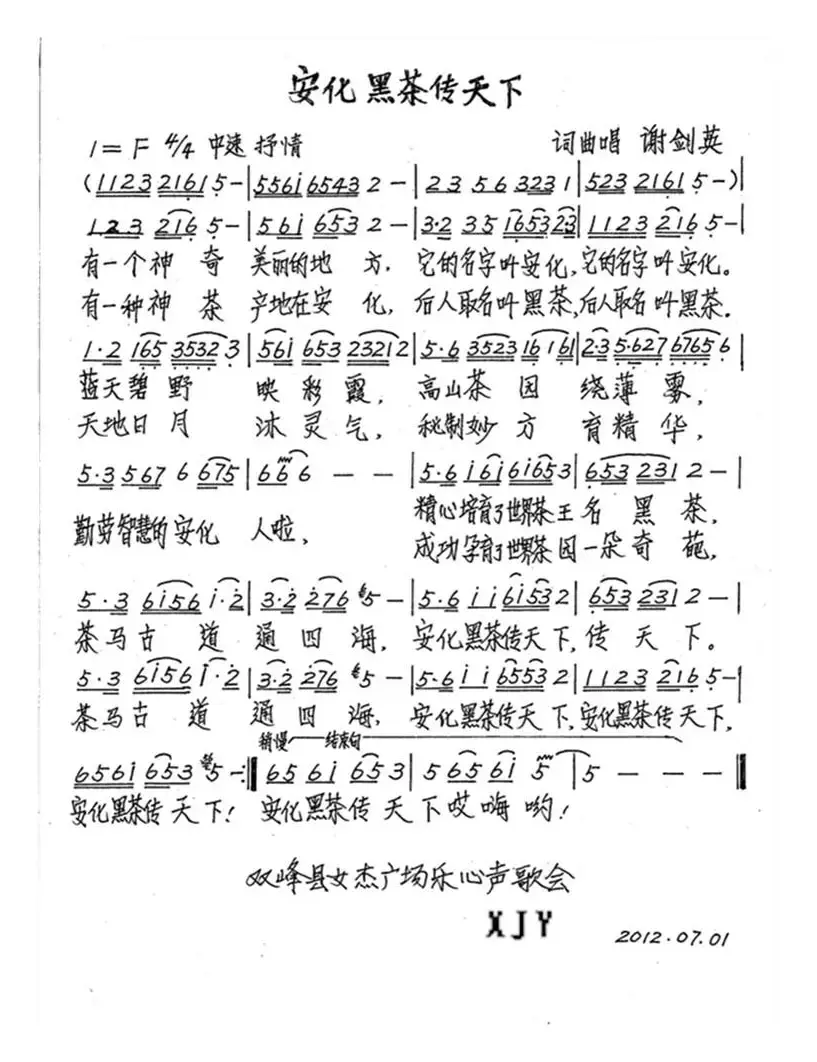 安化黑茶传天下
1=F 4/4 中速 抒情 词曲唱 谢剑英
(1123 2161 5-|5561 6543 2-|23 56 323 1|523 2161 5-)|
1·23 216 5-|561 653 2-|3·2 35 1653 23|1123 216 5-|
有一个神奇 美丽的地方. 它的名字叫安化,它的名字叫安化。
有一种神茶 产地在安化, 后人取名叫黑茶,后人取名叫黑茶.
1·2 165 3532 3|561 653 2321 2|5·6 3523 16 161|2·3 5·627 6765 6|
蓝天碧野 映彩霞, 高山茶园 绕薄雾,
天地日月 沐灵气, 秘制妙方 育精华,
5·3 567 6 675|66 6 - -|5·6 i6i 6i65 3|653 231 2-|
勤劳智慧的安化 人啦, 精心培育了世界茶王名黑茶,
成功孕育了世界茶园一朵奇葩,
5·3 6i56 i·2|3·2 276 5-|5·6 ii 6i53 2|653 231 2-|
茶马古道 通四海, 安化黑茶传天下,传天下。
5·3 6i56 i·2|3·2 276 5-|5·6 ii 6553 2|1123 216 5-|
茶马古道 通四海, 安化黑茶传天下,安化黑茶传天下,
稍慢 结束句
656i 653 5-:‖65 6i 653|5 656i 5|5 - - -‖
安化黑茶传天下! 安化黑茶传天下哎嗨哟!
双峰县女杰广场乐心声歌会
XJY
2012.07.01